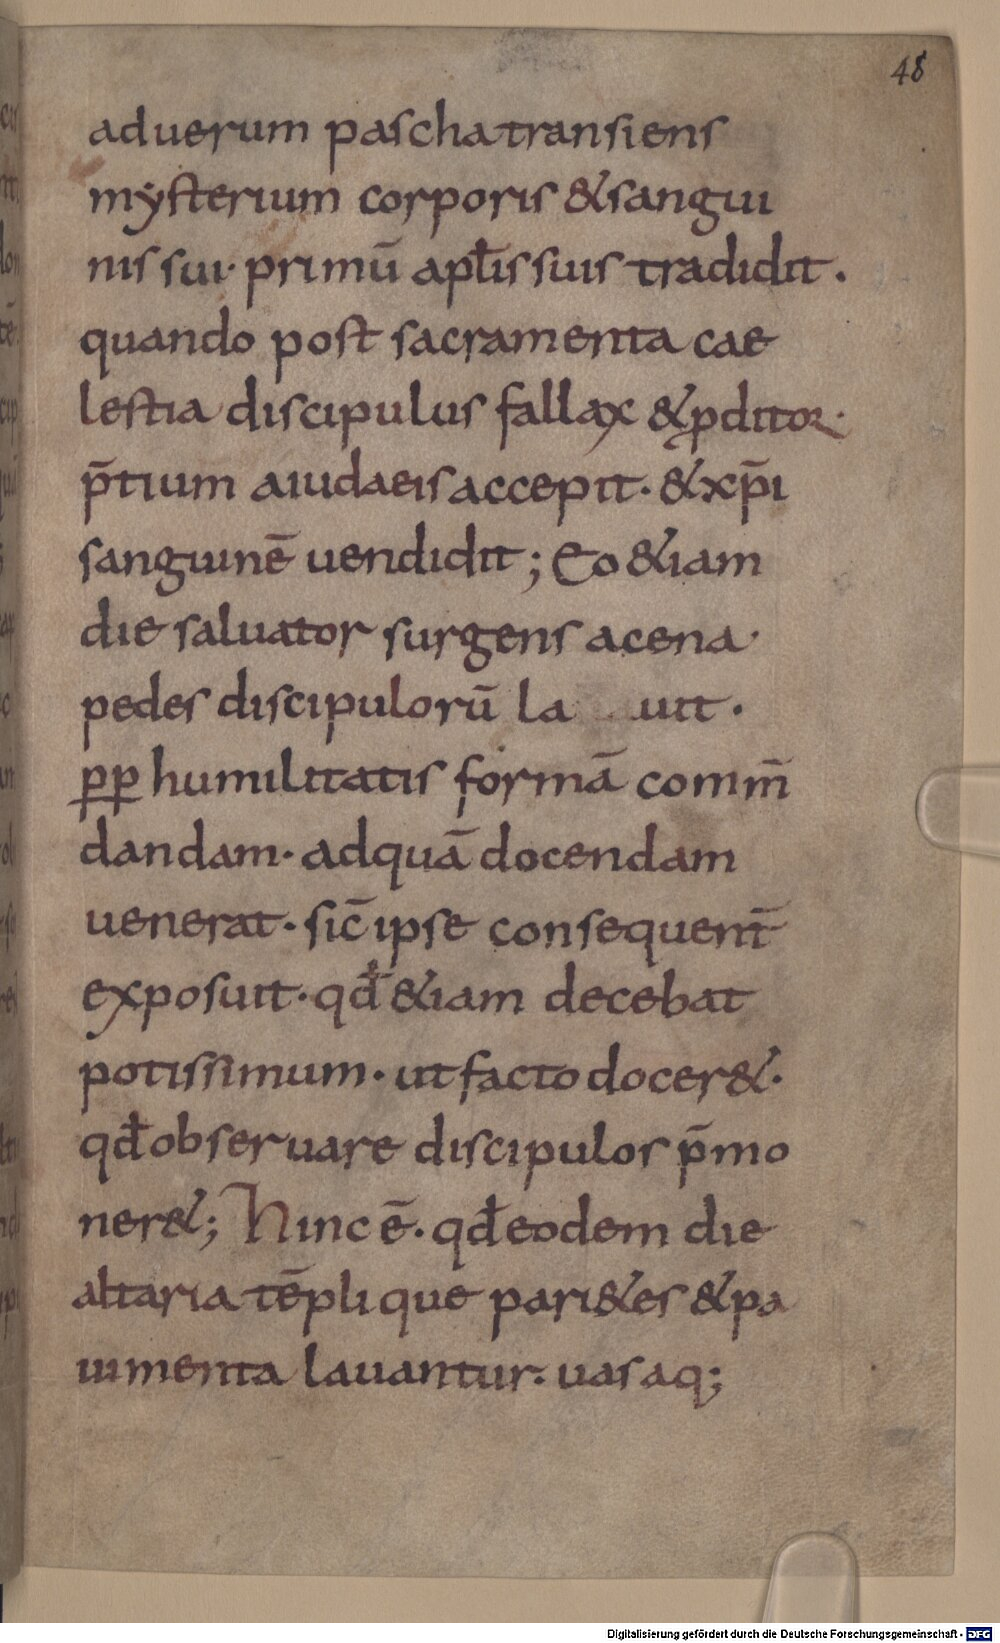 48
aduerum pascha transiens
mysterium corporis & sangui
nis sui· primū apłis suis tradidit.
quando post sacramenta cae
lestia discipulus fallax & p̱ditor·
p̄tium aiudaeis accepit· & xp̄i
sanguinē uendidit; Eo &iam
die saluator surgens acena·
pedes discipulorū la uit·
p̱p̱ humilitatis formā comm̄
dandam· adquā docendam
uenerat· sic̄ ipse consequent̄
exposuit· qđ &iam decebat
potissimum· ut facto docer&·
qđ obseruare discipulos p̄mo
ner&; Hinc ē· qđ eodem die
altaria tēplique pari&es & pa
uimenta lauantur· uasaq;
Digitalisierung gefördert durch die Deutsche Forschungsgemeinschaft - DFG